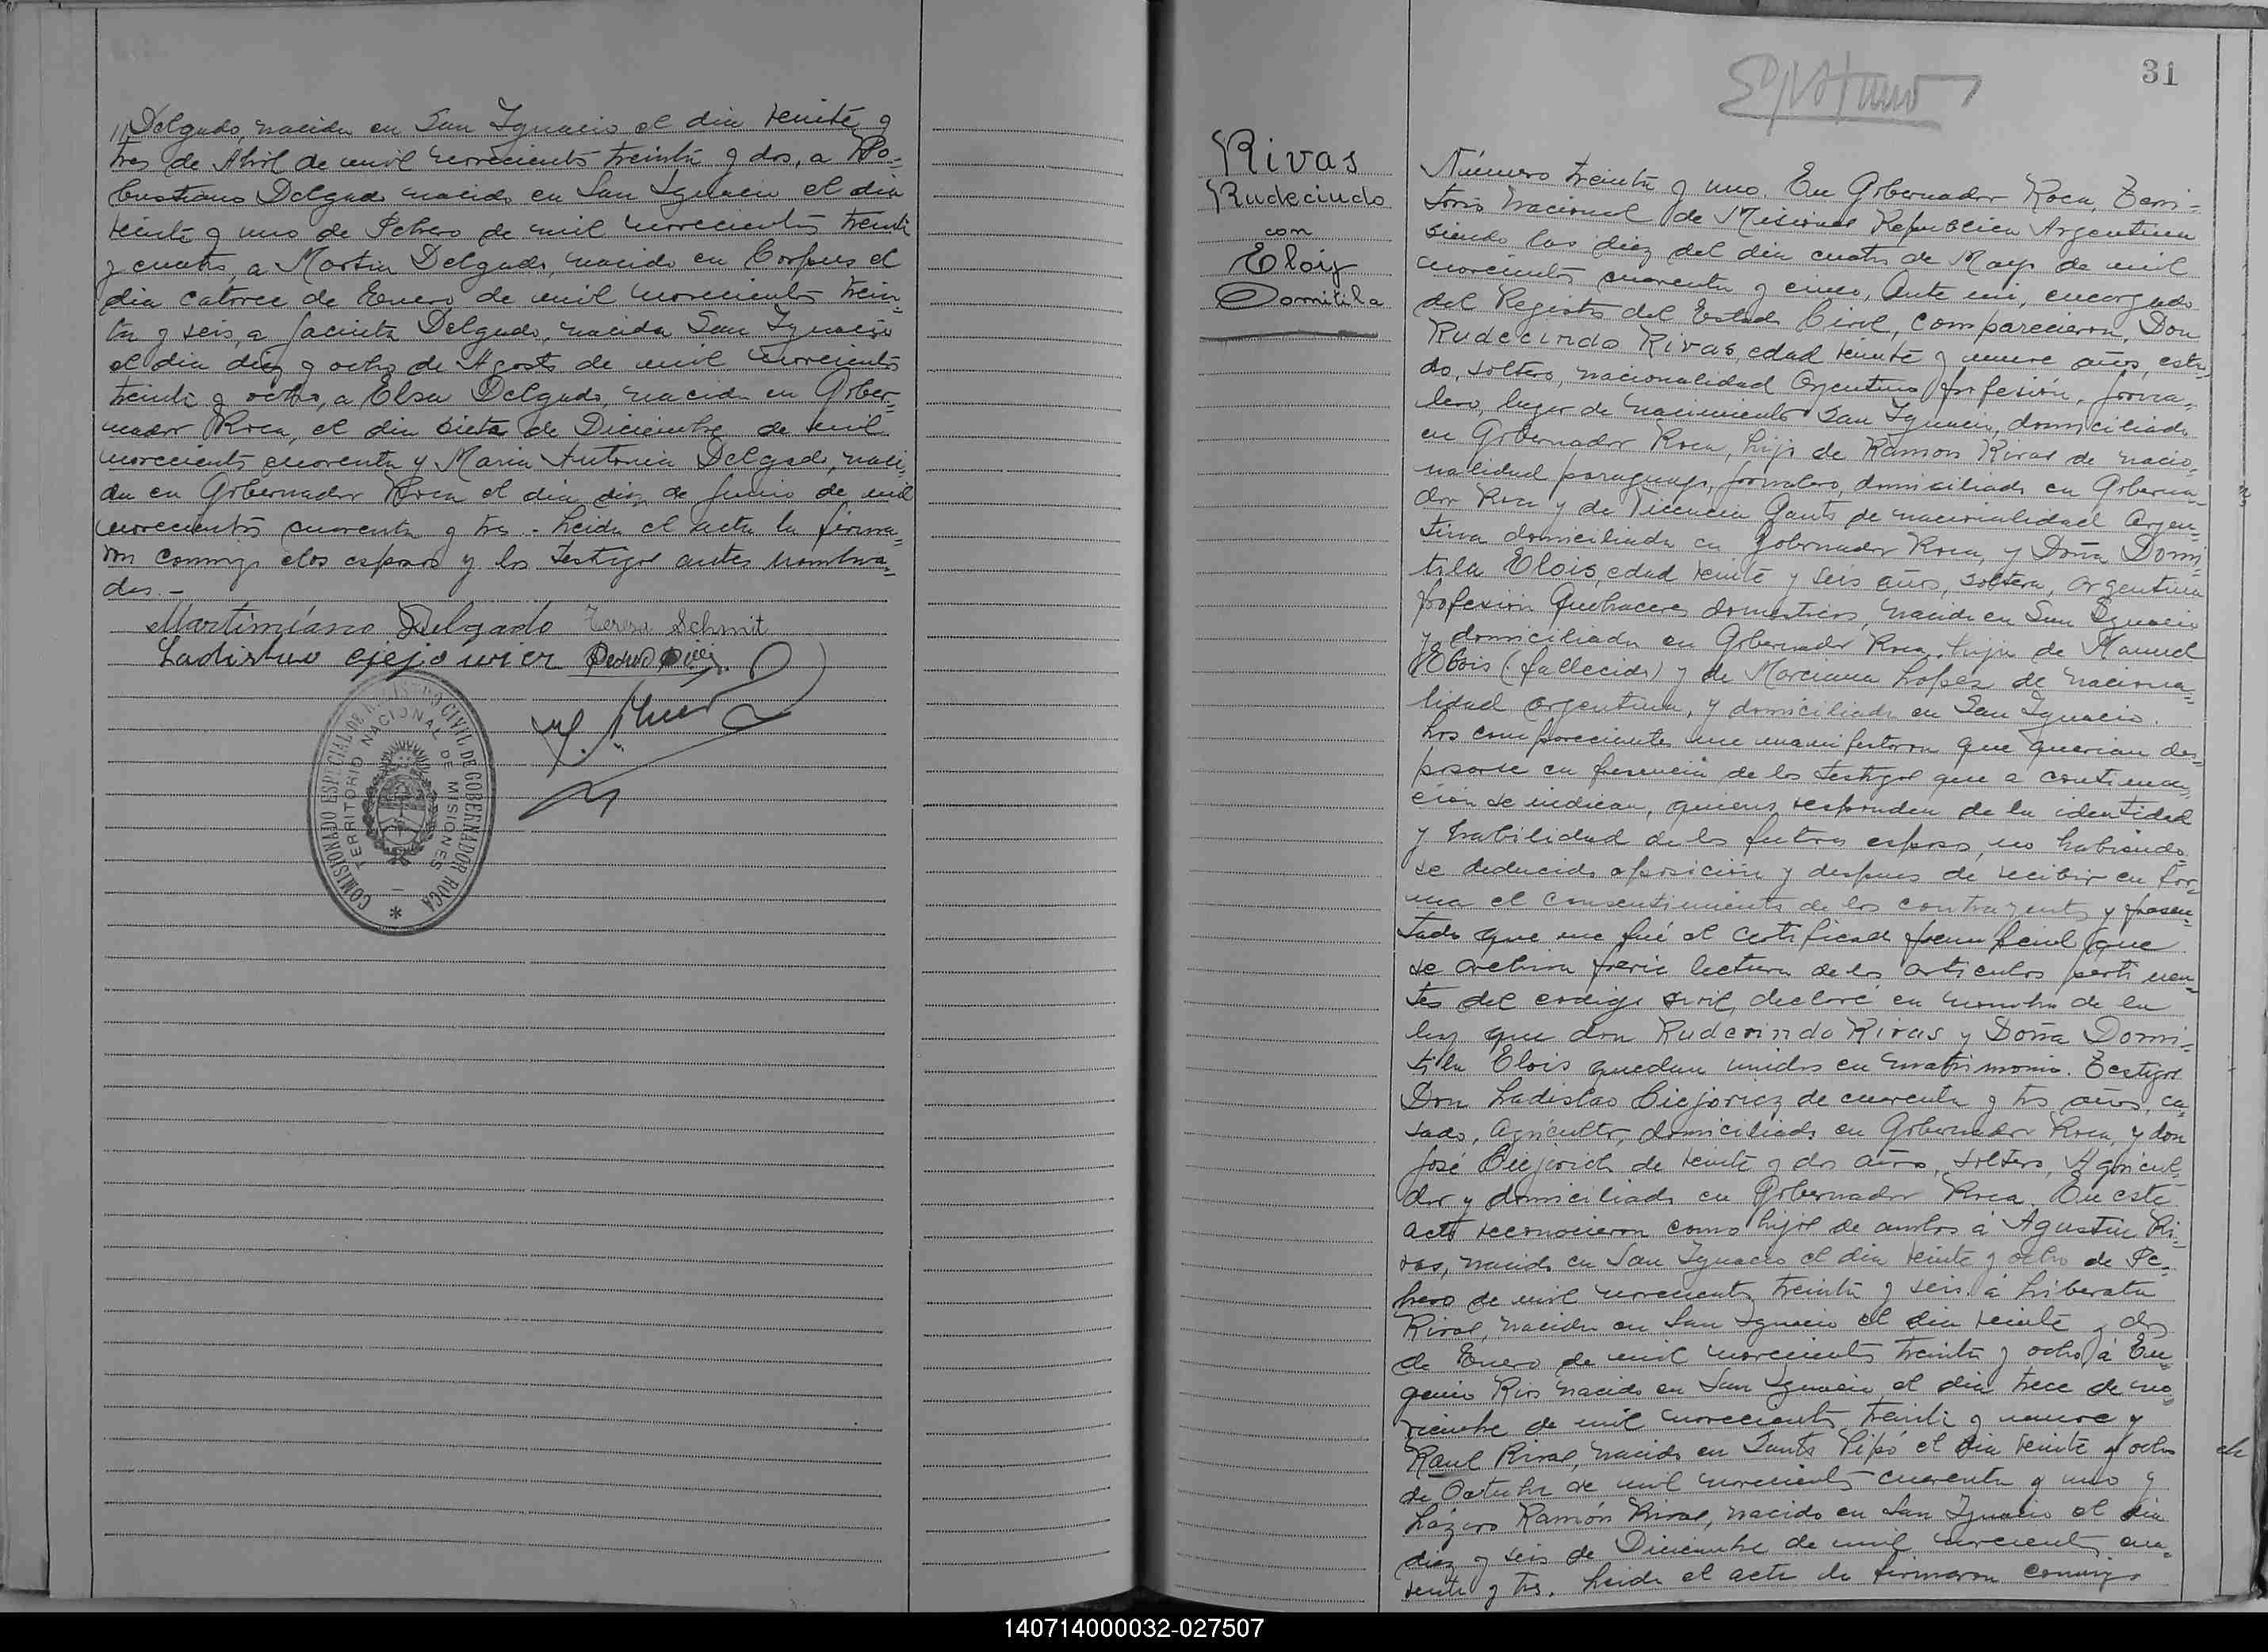 Delgado, nacida en San Ignacio el dia veinte y
tres de Abril de mil novecientos treinta y dos, a Ro=
bustiano Delgado nacido en San Ignacio el dia
veinte y uno de Febrero de mil novecientos treinta
y cuatro, a Martin Delgado, nacido en Corpus el
dia catorce de Enero de mil novecientos trein=
ta y seis, a Jacinta Delgado, nacida San Ignacio
el dia diez y ocho de Agosto de mil novecientos
treinta y ocho, a Elsa Delgado, nacida en Gober=
nador Roca, el dia siete de Diciembre de mil
novecientos cuarenta y Maria Antonia Delgado, naci=
da en Gobernador Roca el dia diez de Junio de mil
novecientos cuarenta y tres.- Leida el acta la firma=
ron conmigo los esposos y los testigos antes nombra=
dos.-
Martimiano Delgado Teresa Schmit
Ladislao
COMISIONADO ESPECIAL DE REGISTRO CIVIL DE GOBERNADOR ROCA
TERRITORIO NACIONAL DE MISIONES
31
Rivas
Rudecindo
con
Eloiz
Domitila
Número treinta y uno. En Gobernador Roca, Terri=
torio Nacional de Misiones Republica Argentina
siendo las diez del dia cuatro de Mayo de mil
novecientos cuarenta y cinco, Ante mi, encargado
del Registro del Estado Civil, comparecieron, Don
Rudecindo Rivas, edad veinte y nueve años, esta=
do, soltero, nacionalidad Argentino profesión, jorna=
lero, lugar de nacimiento San Ignacio, domiciliado
en Gobernador Roca, hijo de Ramon Rivas de nacio=
nalidad paraguayo, jornalero, domiciliado en Goberna=
dor Roca y de Vicencia de nacionalidad Argen=
tina domiciliada en Gobernador Roca, y Doña Domi=
tila Elois, edad veinte y seis años, soltera, argentina
profesión Quehaceres domesticos, nacida en San Ignacio
y domiciliada en Gobernador Roca, hija de Manuel
Elois (fallecido) y de Marciana Lopez de naciona=
lidad argentina, y domiciliada en San Ignacio.
Los comparecientes me manifestaron que querian des=
posarse en presencia de los testigos que a continua=
ción se indican, quienes responden de la identidad
y habilidad de los futuros esposos, no habiendo=
se deducido oposición y despues de recibir en for=
ma el consentimiento de los contrayentes y presen=
tado que me fué el certificado prenupcial que
se archiva previa lectura de los articulos pertinen=
tes del codigo civil, declaré en nombre de la
ley que don Rudecindo Rivas y Doña Domi=
tila Elois quedan unidos en matrimonio. Testigos
Don Ladislao Ciejoricz de cuarenta y tres años, ca=
sado, Agricultor, domiciliado en Gobernador Roca, y don
José de veinte y dos años, soltero, Agricul=
dor y domiciliado en Gobernador Roca. En este
acto reconocieron como hijos de ambos á Agustin Ri=
vas, nacido en San Ignacio el dia veinte y ocho de Fe=
brero de mil novecientos treinta y seis á Liberata
Rivas, nacida en San Ignacio el dia veinte y dos
de Enero de mil novecientos treinta y ocho á Eu=
genio Rios nacido en San Ignacio el dia trece de no=
viembre de mil novecientos treinta y nueve y
Raul Rivas, nacido en Santo Pipó el dia veinte y ocho
de Octubre de mil novecientos cuarenta y uno y
Lázaro Ramón Rivas, nacido en San Ignacio el dia
diez y seis de Diciembre de mil novecientos cua=
renta y tres. Leida el acta la firmaron conmigo
140714000032-027507